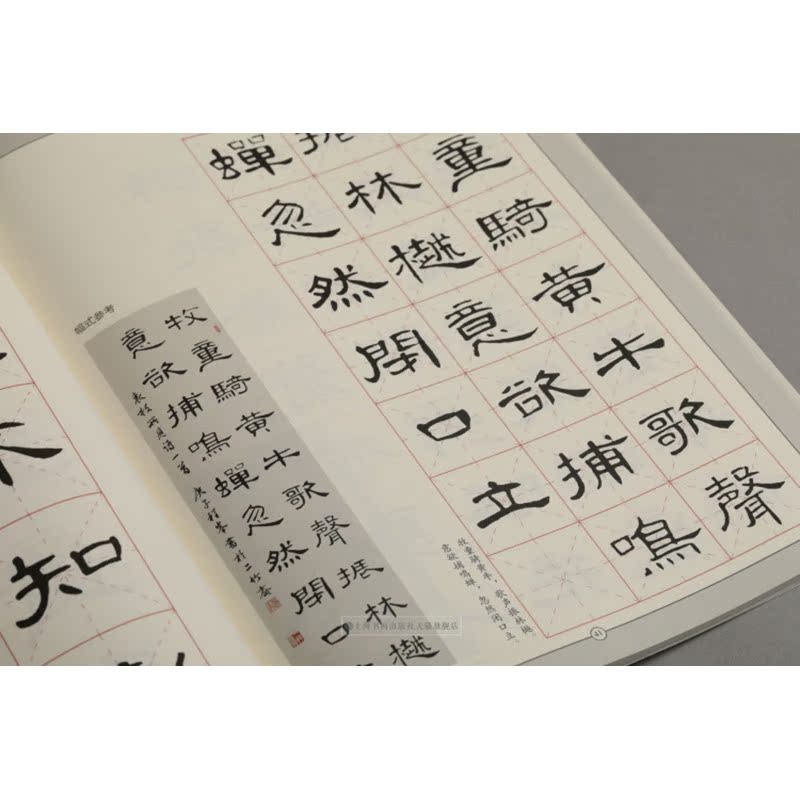 童騎黄牛歌聲
振林樾意欲捕鳴
蟬忽然閉口立
牧童骑黄牛，歌声振林樾。
意欲捕鸣蝉，忽然闭口立。
41
幅式参考
牧童騎黄牛歌聲振林樾
意欲捕鳴蟬忽然閉口
袁枚所見詩一首 庚子 書於二竹齋
知
上海书画出版社天猫旗舰店